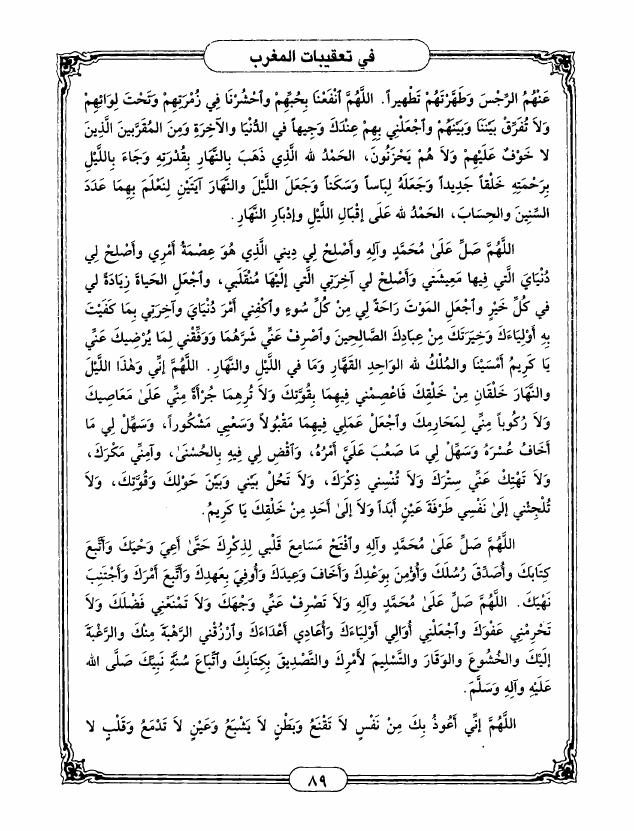 في تعقيبات المغرب
عَنْهُمُ الرِّجْسَ وَطَهَّرْتَهُمْ تَطْهِيراً. اللَّهُمَّ ٱنْفَعْنَا بِحُبِّهِمْ وٱحْشُرْنَا فِي زُمْرَتِهِمْ وَتَحْتَ لِوَائِهِمْ
وَلاَ تُفَرِّقْ بَيْنَنَا وَبَيْنَهُمْ وٱجْعَلْنِي بِهِمْ عِنْدَكَ وَجِيهاً في الدُّنْيَا والآخِرَةِ وَمِنَ المُقَرَّبِينَ الَّذِينَ
لا خَوْفٌ عَلَيْهِمْ وَلاَ هُمْ يَحْزَنُونَ، الحَمْدُ لله الَّذِي ذَهَبَ بِالنَّهَارِ بِقُدْرَتِهِ وَجَاءَ بِاللَّيْلِ
بِرَحْمَتِهِ خَلْقاً جَدِيداً وَجَعَلَهُ لِبَاساً وَسَكَناً وَجَعَلَ اللَّيْلَ والنَّهَارَ آيَتَيْنِ لِنَعْلَمَ بِهِمَا عَدَدَ
السِّنِينَ والحِسَابَ، الحَمْدُ لله عَلَى إقْبَالِ اللَّيْلِ وإدْبَارِ النَّهَارِ.
اللَّهُمَّ صَلِّ عَلَىٰ مُحَمَّدٍ وآلِهِ وأَصْلِحْ لِي دِيني الَّذِي هُوَ عِصْمَةُ أَمْرِي وأَصْلِحْ لِي
دُنْيَايَ الَّتِي فِيها مَعِيشَتي وَأَصْلِحْ لي آخِرَتِي الَّتي إلَيْهَا مُنْقَلَبي، وٱجْعَلِ الحَياةَ زِيَادَةً لي
في كُلِّ خَيْرٍ وٱجْعَلِ المَوْتَ رَاحَةً لِي مِنْ كُلِّ سُوءٍ وٱكْفِنِي أَمْرَ دُنْيَايَ وآخِرَتِي بِمَا كَفَيْتَ
بِهِ أَوْلِيَاءَكَ وَخِيَرَتَكَ مِنْ عِبَادِكَ الصَّالِحِينَ وٱصْرِفْ عَنِّي شَرَّهُمَا وَوَفِّقْنِي لِمَا يُرْضِيكَ عَنِّي
يَا كَرِيمُ أَمْسَيْنَا والمُلْكُ لله الوَاحِدِ القَهَّارِ وَمَا في اللَّيْلِ والنَّهَارِ. اللَّهُمَّ إنِّي وَهٰذَا اللَّيْلَ
والنَّهَارَ خَلْقَانِ مِنْ خَلْقِكَ فَاعْصِمْنِي فِيهِمَا بِقُوَّتِكَ وَلاَ تُرِهِمَا جُرْأَةً مِنِّي عَلَىٰ مَعَاصِيكَ
وَلاَ رُكُوباً مِنِّي لِمَحَارِمِكَ وٱجْعَلْ عَمَلِي فِيهِمَا مَقْبُولاً وَسَعْيِي مَشْكُوراً، وَسَهِّلْ لِي مَا
أَخَافُ عُسْرَهُ وَسَهِّلْ لِي مَا صَعُبَ عَلَيَّ أَمْرُهُ، وَٱقْضِ لِي فِيهِ بِالحُسْنَىٰ، وآمِنِّي مَكْرَكَ،
وَلاَ تَهْتِكْ عَنِّي سِتْرَكَ وَلاَ تُنْسِنِي ذِكْرَكَ، وَلاَ تَحُلْ بَيْنِي وَبَيْنَ حَوْلِكَ وَقُوَّتِكَ، وَلاَ
تُلْجِئْنِي إلىٰ نَفْسِي طَرْفَةَ عَيْنٍ أَبَداً وَلاَ إلىٰ أَحَدٍ مِنْ خَلْقِكَ يَا كَرِيمُ.
اللَّهُمَّ صَلِّ عَلَىٰ مُحَمَّدٍ وآلِهِ وٱفْتَحْ مَسَامِعَ قَلْبِي لِذِكْرِكَ حَتَّىٰ أَعِيَ وَحْيَكَ وَأَتَّبِعَ
كِتَابَكَ وأُصَدِّقَ رُسُلَكَ وَأُؤْمِنَ بِوَعْدِكَ وَأَخَافَ وَعِيدَكَ وَأُوفِيَ بِعَهدِكَ وَأَتَّبِعَ أَمْرَكَ وَأَجْتَنِبَ
نَهْيَكَ. اللَّهُمَّ صَلِّ عَلَىٰ مُحَمَّدٍ وآلِهِ وَلاَ تَصْرِفْ عَنِّي وَجْهَكَ وَلاَ تَمْنَعْنِي فَضْلَكَ وَلاَ
تَحْرِمْنِي عَفْوَكَ وٱجْعَلْنِي أُوَالِي أَوْلِيَاءَكَ وَأُعَادِي أَعْدَاءَكَ وٱرْزُقْنِي الرَّهْبَةَ مِنْكَ والرَّغْبَةَ
إلَيْكَ والخُشُوعَ والوَقَارَ والتَّسْلِيمَ لأَمْرِكَ والتَّصْدِيقَ بِكِتَابِكَ وٱتِّبَاعَ سُنَّةِ نَبِيِّكَ صَلَّى الله
عَلَيْهِ وآلِهِ وَسَلَّمَ.
اللَّهُمَّ إنِّي أَعُوذُ بِكَ مِنْ نَفْسٍ لاَ تَقْنَعُ وَبَطْنٍ لاَ يَشْبَعُ وَعَيْنٍ لاَ تَدْمَعُ وَقَلْبٍ لا
٨٩